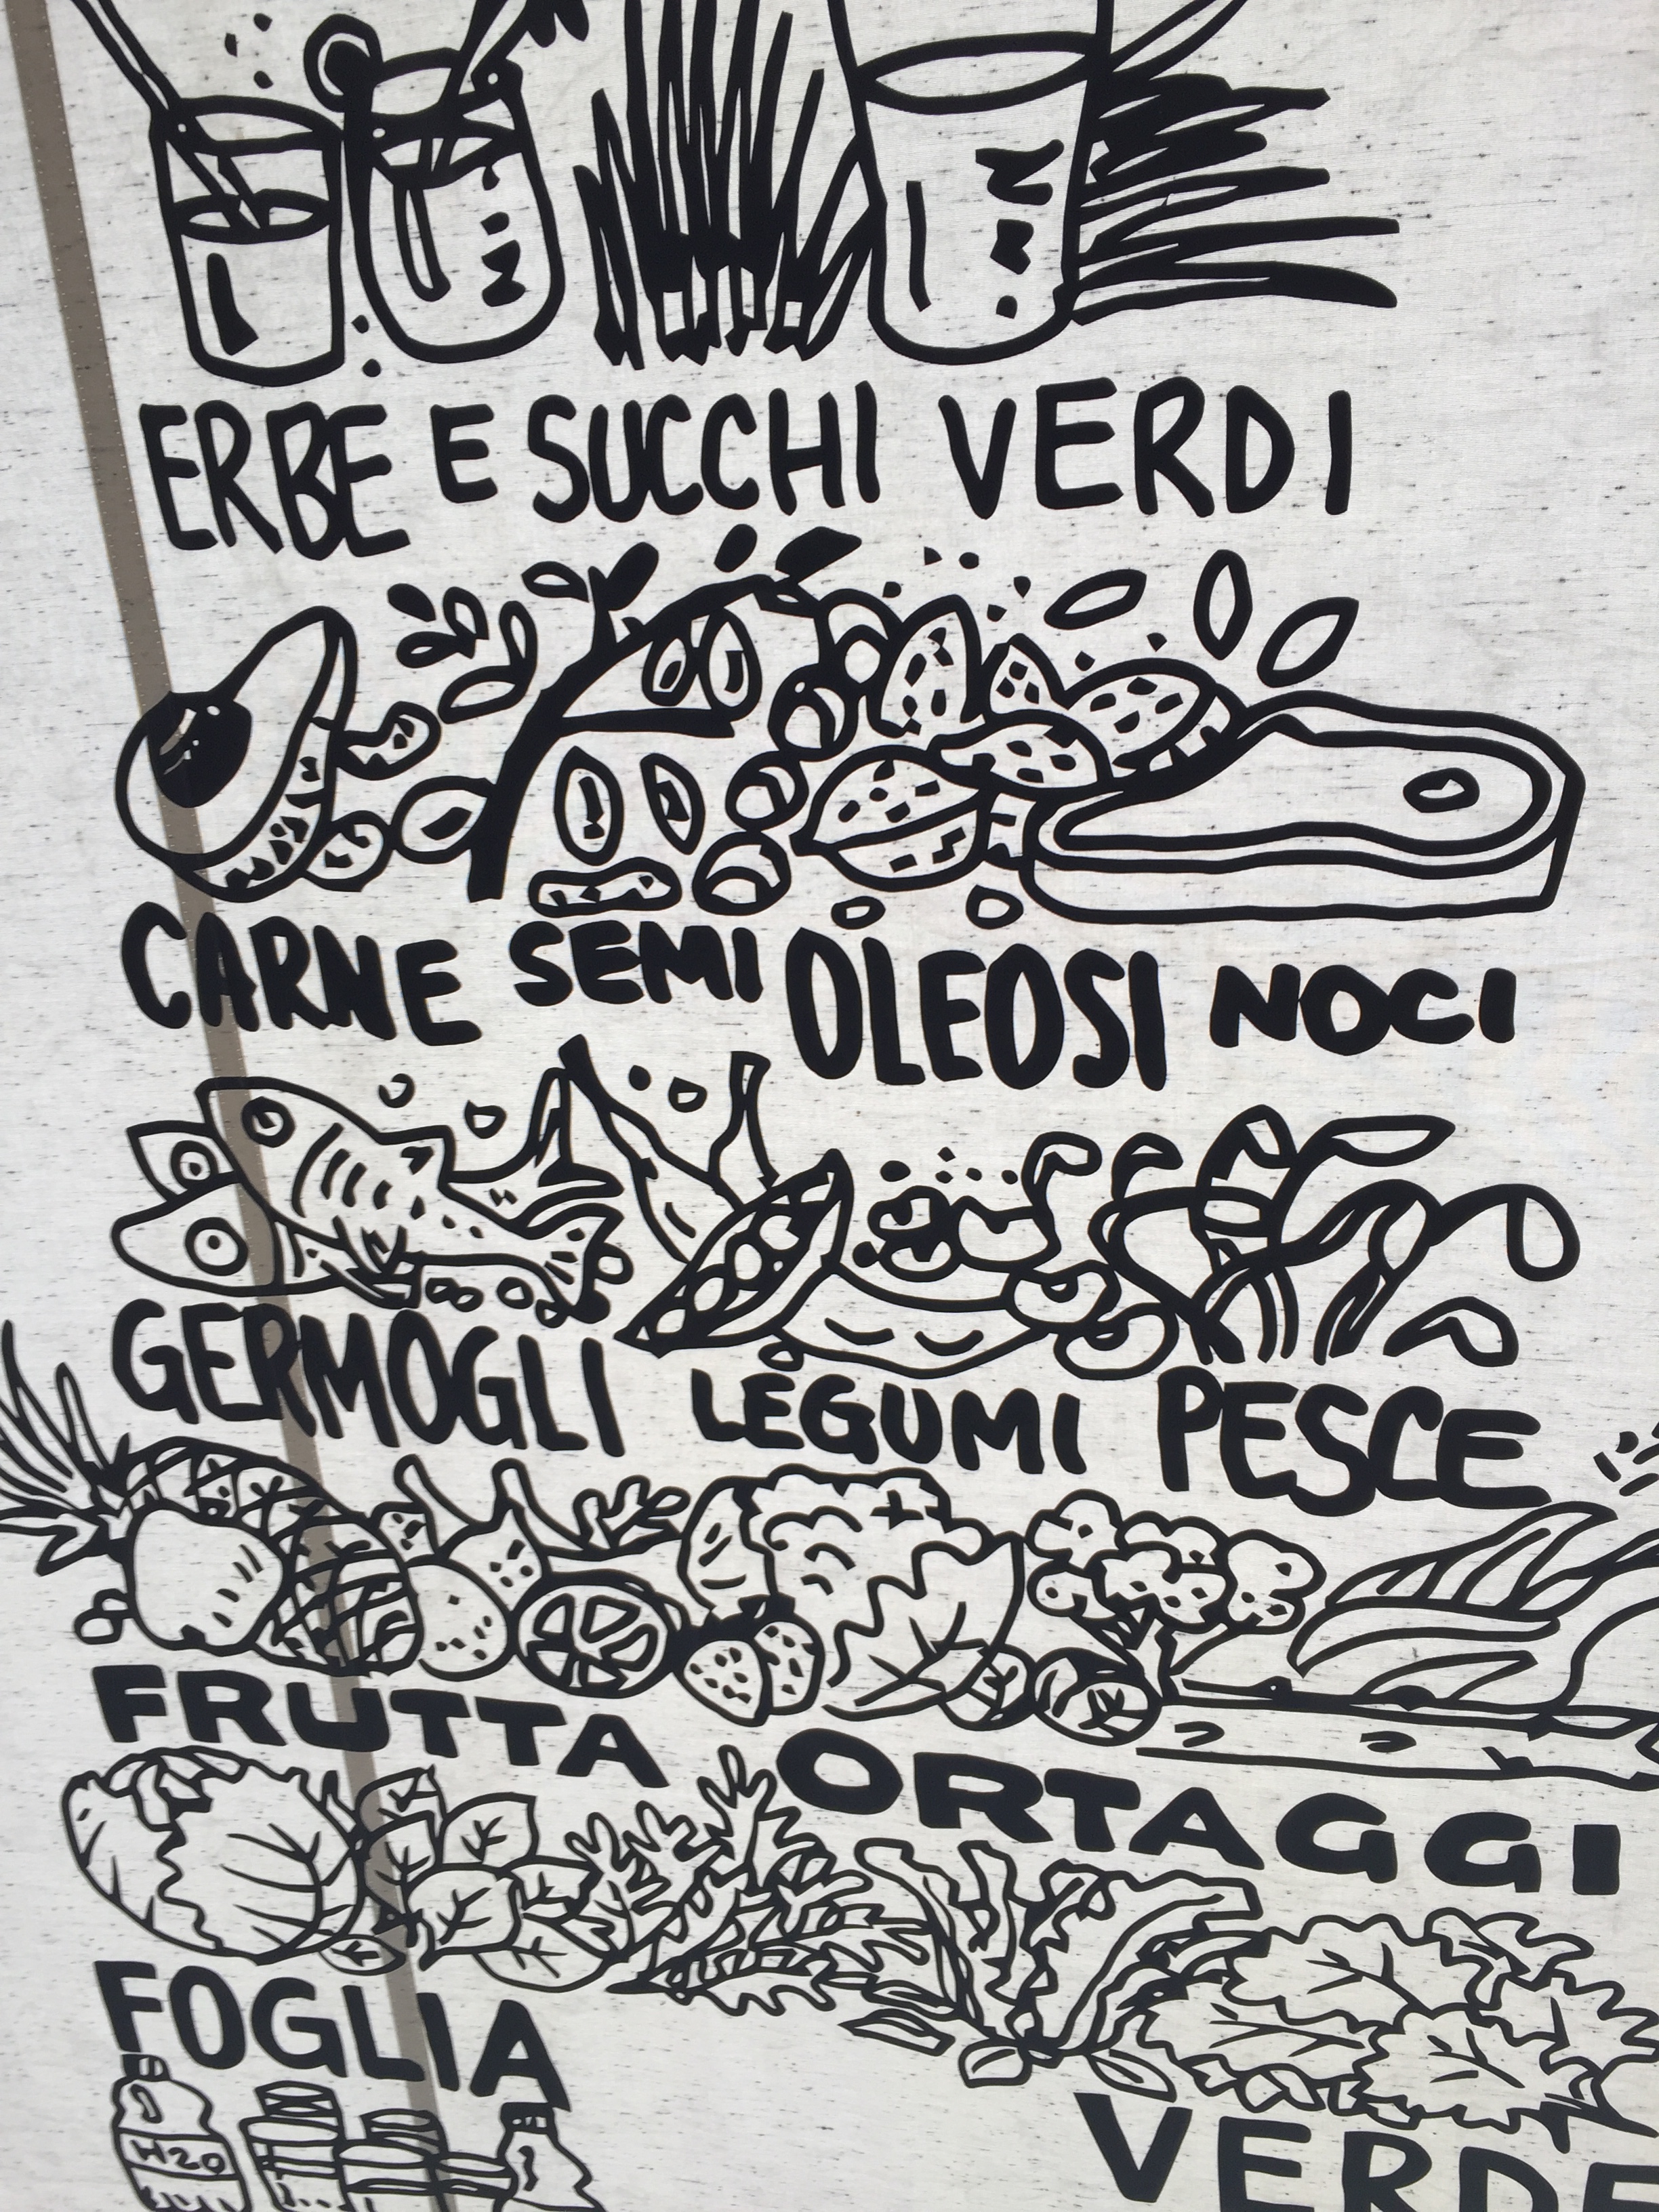 ERBE E SUCCHI VERDI
CARNE SEMI OLEOSI NOCI
GERMOGLI LEGUMI PESCE
FRUTTA ORTAGGI
FOGLIA VERDE
H2O